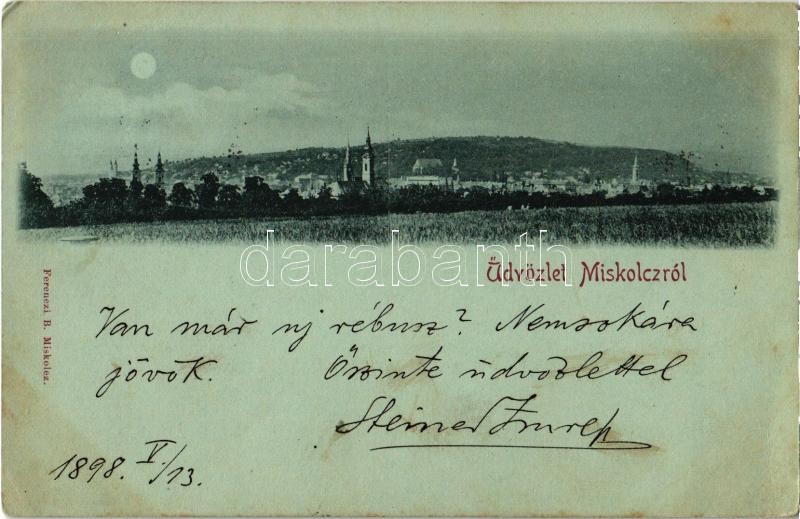 darabanth
Üdvözlet Miskolczról
Ferenczi B. Miskolcz.
Van már uj rébusz? Nemsokára
jövök. Őszinte üdvözlettel
Steiner Imre
1898. V/13.